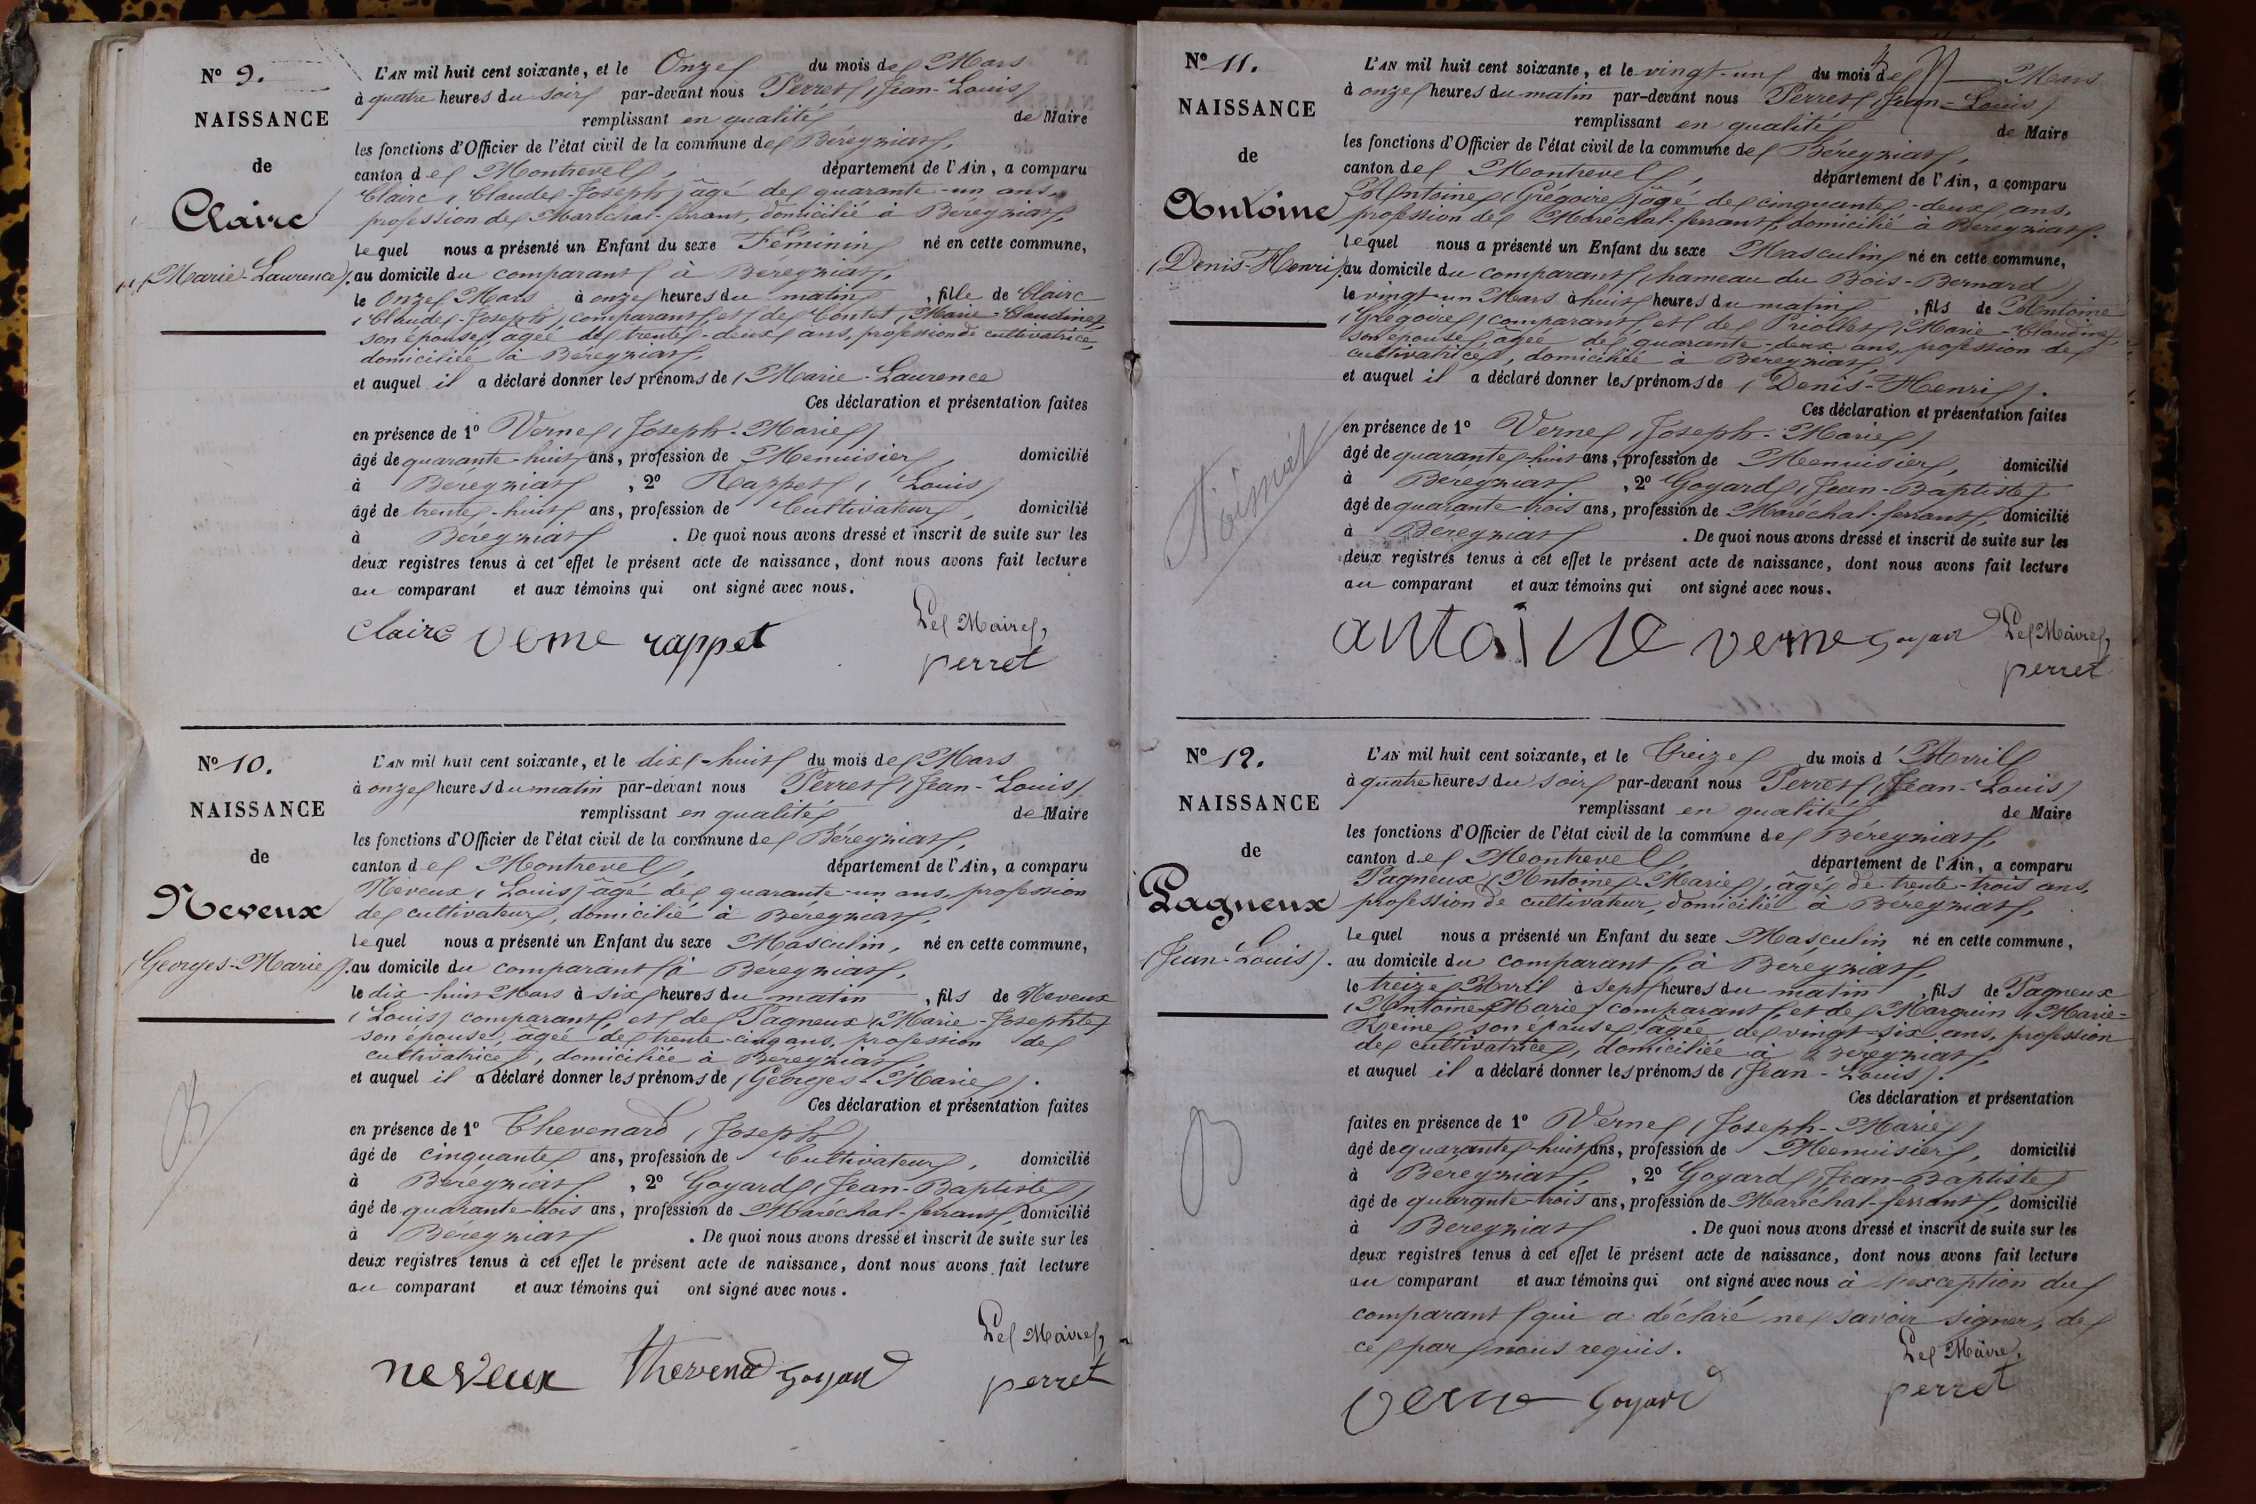 Nº 9.
NAISSANCE
de
Claire
(Marie-Laurence).
L'AN mil huit cent soixante, et le Onze du mois de Mars
à quatre heures du soir par-devant nous Perret (Jean-Louis)
remplissant en qualité de Maire
les fonctions d'Officier de l'état civil de la commune de Béreyziat,
canton de Montrevel, département de l'Ain, a comparu
Claire (Claude-Joseph) âgé de quarante-un ans,
profession de Maréchal-ferrant, domicilié à Béreyziat,
lequel nous a présenté un Enfant du sexe Féminin né en cette commune,
au domicile du comparant à Béreyziat,
le Onze Mars à onze heures du matin, fille de Claire
(Claude-Joseph) comparant et de Contet (Marie-Claudine)
son épouse, âgée de trente-deux ans, profession de cultivatrice,
domiciliée à Béreyziat,
et auquel il a déclaré donner les prénoms de (Marie-Laurence
Ces déclaration et présentation faites
en présence de 1º Verne (Joseph-Marie)
âgé de quarante-huit ans, profession de Menuisier, domicilié
à Béreyziat, 2º Rappet (Louis)
âgé de trente-huit ans, profession de Cultivateur, domicilié
à Béreyziat. De quoi nous avons dressé et inscrit de suite sur les
deux registres tenus à cet effet le présent acte de naissance, dont nous avons fait lecture
au comparant et aux témoins qui ont signé avec nous.
Le Maire,
Claire verne rappet
perret
Nº 10.
NAISSANCE
de
Neveux
(Georges-Marie).
L'AN mil huit cent soixante, et le dix-huit du mois de Mars
à onze heures du matin par-devant nous Perret (Jean-Louis)
remplissant en qualité de Maire
les fonctions d'Officier de l'état civil de la commune de Béreyziat,
canton de Montrevel, département de l'Ain, a comparu
Neveux (Louis) âgé de quarante-un ans, profession
de cultivateur, domicilié à Béreyziat,
lequel nous a présenté un Enfant du sexe Masculin, né en cette commune,
au domicile du comparant à Béreyziat,
le dix-huit Mars à six heures du matin, fils de Neveux
(Louis) comparant, et de Pagneux (Marie-Josephte)
son épouse, âgée de trente-cinq ans, profession de
cultivatrice, domiciliée à Béreyziat,
et auquel il a déclaré donner les prénoms de (Georges-Marie).
Ces déclaration et présentation faites
en présence de 1º Thevenard (Joseph)
âgé de cinquante ans, profession de Cultivateur, domicilié
à Béreyziat, 2º Goyard (Jean-Baptiste)
âgé de quarante-trois ans, profession de Maréchal-ferrant, domicilié
à Béreyziat. De quoi nous avons dressé et inscrit de suite sur les
deux registres tenus à cet effet le présent acte de naissance, dont nous avons fait lecture
au comparant et aux témoins qui ont signé avec nous.
Le Maire,
neveux thevenard Goyard perret
Nº 11.
NAISSANCE
de
Antoine
(Denis-Henri).
L'AN mil huit cent soixante, et le vingt-un du mois de Mars
à onze heures du matin par-devant nous Perret (Jean-Louis)
remplissant en qualité de Maire
les fonctions d'Officier de l'état civil de la commune de Béreyziat,
canton de Montrevel, département de l'Ain, a comparu
Antoine (Grégoire) âgé de cinquante-deux ans,
profession de Maréchal-ferrant, domicilié à Béreyziat.
lequel nous a présenté un Enfant du sexe Masculin né en cette commune,
au domicile du comparant, hameau du Bois-Bernard
le vingt-un Mars à huit heures du matin, fils de Antoine
(Grégoire) comparant et de Priollet (Marie-Claudine)
son épouse, âgée de quarante-deux ans, profession de
cultivatrice, domiciliée à Béreyziat,
et auquel il a déclaré donner les prénoms de (Denis-Henri).
Ces déclaration et présentation faites
en présence de 1º Verne (Joseph-Marie)
âgé de quarante-huit ans, profession de Menuisier, domicilié
à Béreyziat, 2º Goyard (Jean-Baptiste)
âgé de quarante-trois ans, profession de Maréchal-ferrant, domicilié
à Béreyziat. De quoi nous avons dressé et inscrit de suite sur les
deux registres tenus à cet effet le présent acte de naissance, dont nous avons fait lecture
au comparant et aux témoins qui ont signé avec nous.
antoine verne Goyard Le Maire,
perret
Nº 12.
NAISSANCE
de
Pagneux
(Jean-Louis).
L'AN mil huit cent soixante, et le Treize du mois d'Avril
à quatre heures du soir par-devant nous Perret (Jean-Louis)
remplissant en qualité de Maire
les fonctions d'Officier de l'état civil de la commune de Béreyziat,
canton de Montrevel, département de l'Ain, a comparu
Pagneux (Antoine-Marie), âgé de trente-trois ans,
profession de cultivateur, domicilié à Béreyziat,
lequel nous a présenté un Enfant du sexe Masculin né en cette commune,
au domicile du comparant, à Béreyziat,
le treize Avril à sept heures du matin, fils de Pagneux
(Antoine-Marie) comparant, et de Margrin (Marie-
Reine, son épouse, âgée de vingt-six ans, profession
de cultivatrice, domiciliée à Béreyziat,
et auquel il a déclaré donner les prénoms de (Jean-Louis).
Ces déclaration et présentation
faites en présence de 1º Verne (Joseph-Marie)
âgé de quarante-huit ans, profession de Menuisier, domicilié
à Béreyziat, 2º Goyard (Jean-Baptiste)
âgé de quarante-trois ans, profession de Maréchal-ferrant, domicilié
à Béreyziat. De quoi nous avons dressé et inscrit de suite sur les
deux registres tenus à cet effet le présent acte de naissance, dont nous avons fait lecture
au comparant et aux témoins qui ont signé avec nous à l'exception du
comparant qui a déclaré ne savoir signer, de
ce par nous requis.
Le Maire,
verne Goyard perret